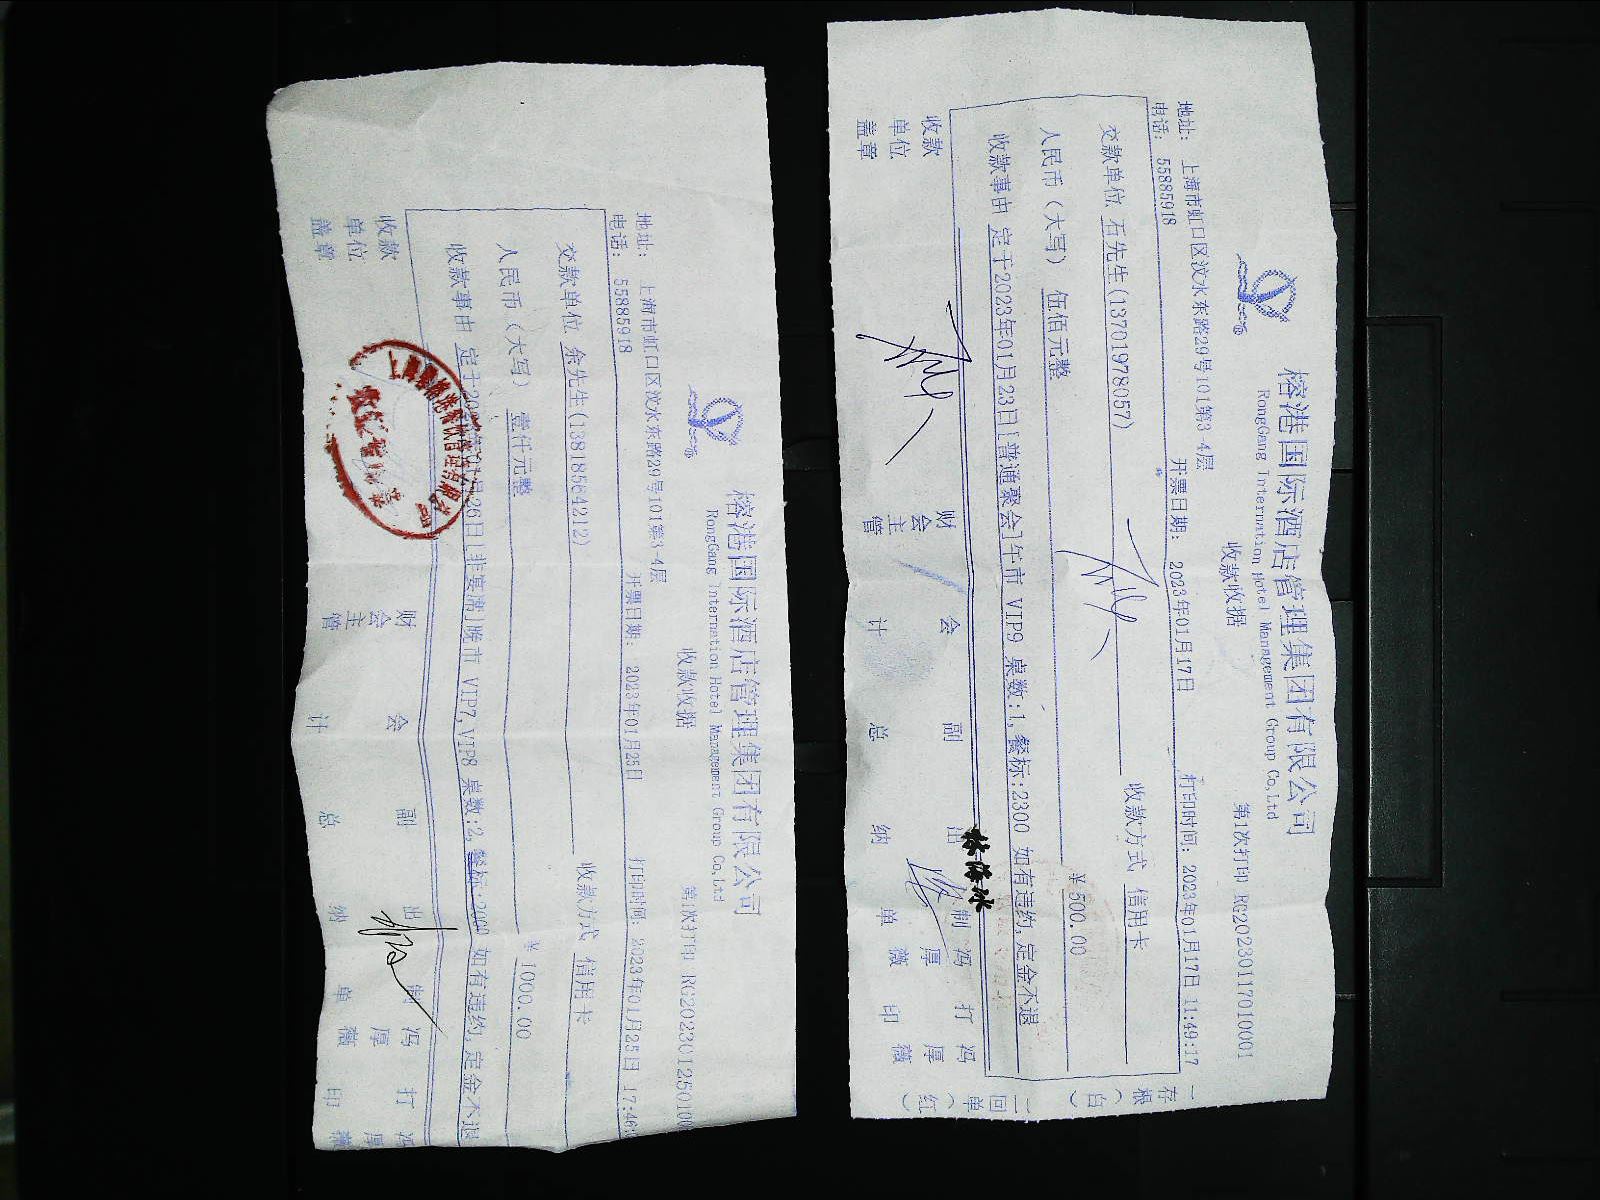 榕港国际酒店管理集团有限公司
RongGang Internation Hotel Management Group Co,Ltd
收款收据
第1次打印 RG20230117010001
地址: 上海市虹口区汶水东路29号101第3-4层
电话: 55885918
开票日期: 2023年01月17日
打印时间: 2023年01月17日 11:49:17
交款单位 石先生(13701978057)
收款方式 信用卡
人民币(大写) 伍佰元整
￥500.00
收款事由 定于2023年01月23日[普通聚会]午市 VIP9 桌数:1, 餐标:2300 如有违约,定金不退
收款单位盖章
财会主管
会计
副总
出纳
制单
冯厚薇
打印
冯厚薇
一存根(白)
二回单(红)
榕港国际酒店管理集团有限公司
RongGang Internation Hotel Management Group Co,Ltd
收款收据
第1次打印 RG202301250100
地址: 上海市虹口区汶水东路29号101第3-4层
电话: 55885918
开票日期: 2023年01月25日
打印时间: 2023年01月25日 17:46:
交款单位 余先生(13818564212)
收款方式 信用卡
人民币(大写) 壹仟元整
￥1000.00
收款事由 定于2023年01月26日[非宴席]晚市 VIP7,VIP8 桌数:2, 餐标:2000 如有违约,定金不退
收款单位盖章
财会主管
会计
副总
出纳
制单
冯厚薇
打印
冯厚薇